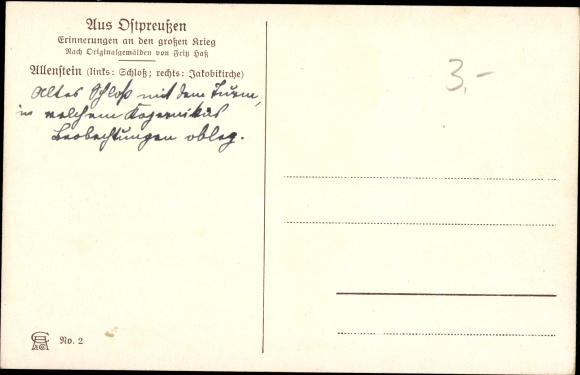 Aus Ostpreußen
Erinnerungen an den großen Krieg
Nach Originalgemälden von Fritz Haß
Allenstein (links: Schloß; rechts: Jakobikirche)
Altes Schloß mit dem Turm,
in welchem Kopernikus
Beobachtungen oblag.
3,-
No. 2